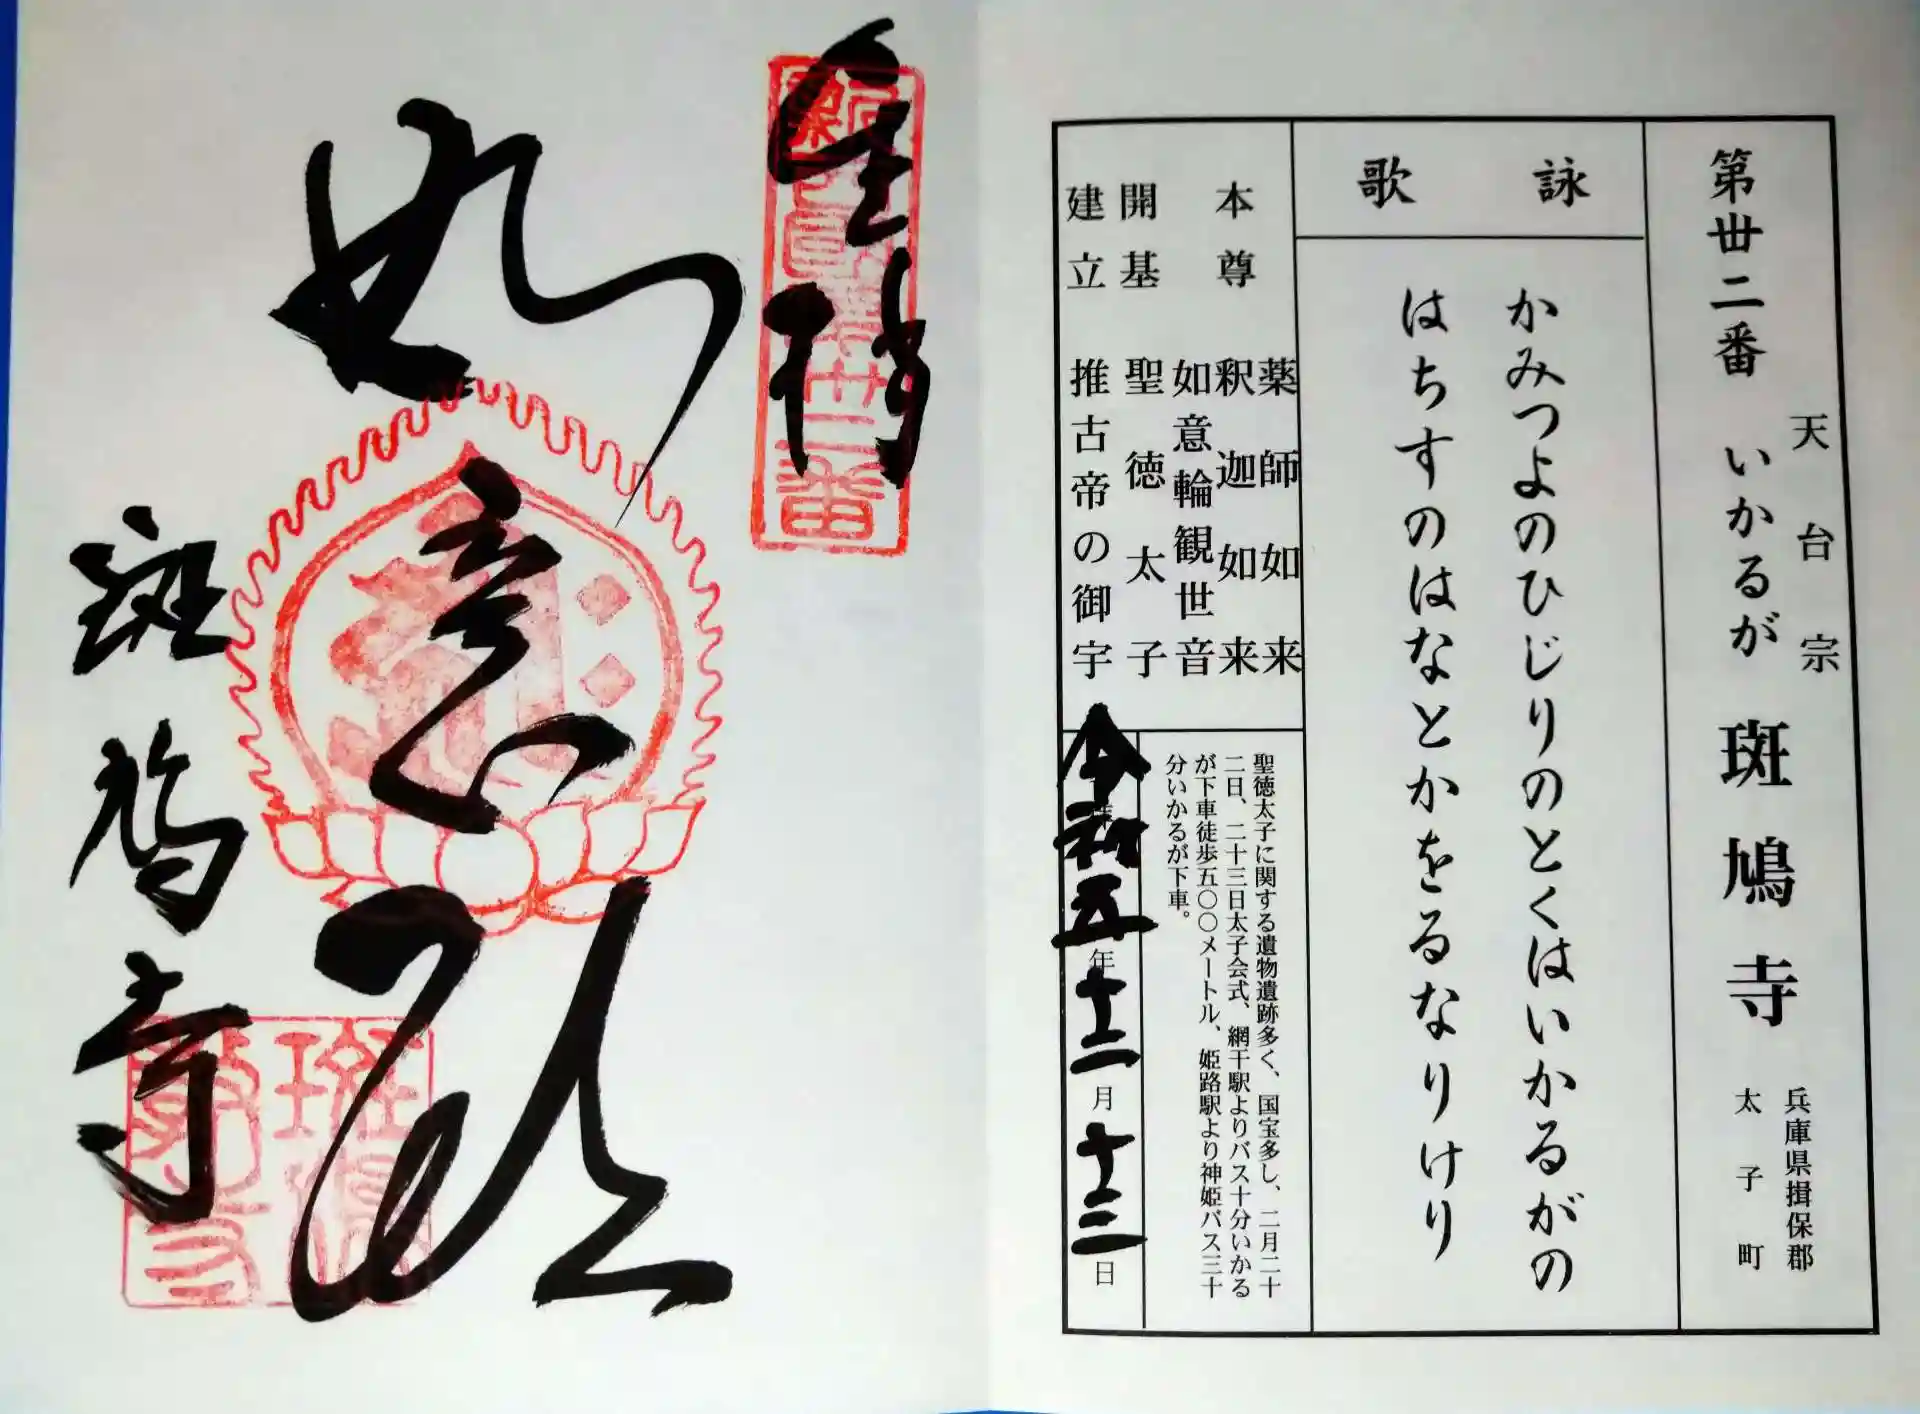 第丗二番 いかるが 斑鳩寺
天台宗
兵庫県揖保郡
太子町
詠歌
かみつよのひじりのとくはいかるがの
はちすのはなとかをるなりけり
本尊
薬師如来
釈迦如来
如意輪観世音
開基 聖徳太子
建立 推古帝の御宇
聖徳太子に関する遺物遺跡多く、国宝多し、二月二十
二日、二十三日太子会式、網干駅よりバス十分いかる
が下車徒歩五〇〇メートル、姫路駅より神姫バス三十
分いかるが下車。
令和五年十二月十三日
奉拝
新西国第丗二番
如意輪
斑鳩寺